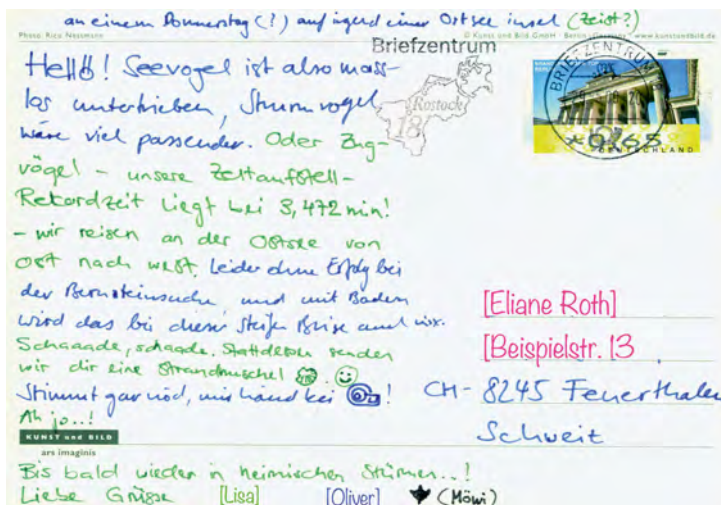 an einem Donnerstag (?) auf irgend einer Ostsee insel (Zeist?)
Photo: Rico Nessmann
© Kunst und Bild GmbH · Berlin · Germany · www.kunstundbild.de
Briefzentrum
18
Rostock
BRIEFZENTRUM
DEUTSCHLAND
Hellö! Seevogel ist also mass-
los untertrieben, Sturmvogel
wäre viel passender. Oder Zug-
vögel - unsere Zeltaufstell-
Rekordzeit liegt bei 3,472 min!
- wir reisen an der Ostsee von
Ost nach west. Leider ohne Erfolg bei
der Bernsteinsuche und mit Baden
wird das bei dieser steifen Brise auch nix.
Schaaade, schaade. Stattdessen senden
wir dir eine Strandmuschel
Stimmt gar nöd, mir händ kei !
Ah jo..!
KUNST und BILD
ars imaginis
Bis bald wieder in heimischen Stürmen..!
Liebe Grüsse [Lisa] [Oliver] (Möwi)
[Eliane Roth]
[Beispielstr. 13
CH- 8245 Feuerthalen
Schweiz